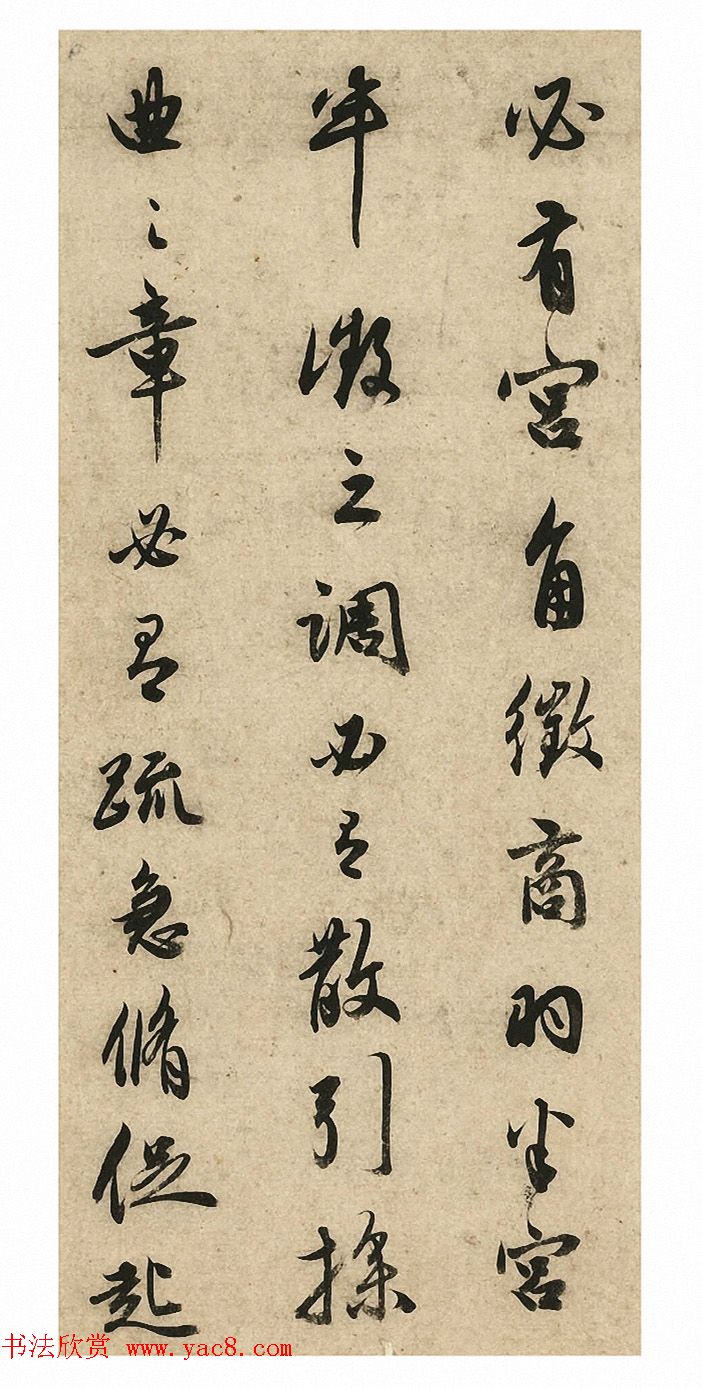 必有宫角徵商羽半宫
半徵之调必有散引操
曲之章必有疏急脩促起
书法欣赏 www.yac8.com